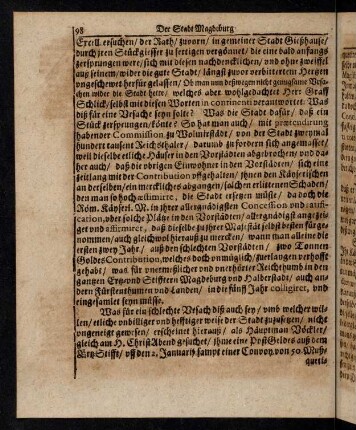 98
Der Stadt Magdeburg
Excell. ersuchen / der Rath / zuvorn / in gemeiner Stadt Gießhause /
durch jren Stückgiesser zu fertigen vergönnet / die eine bald anfangs
zersprungen were / sich mit diesen nachdencklichen / und ohne zweiffel
aus seinem / wider die gute Stadt / längst zuvor verbittertem Hertzen
ungeschewet herfür gelassen / Ob man uns deßwegen nicht gnugsame Ursa-
chen wider die Stadt hette / welches aber wohlgedachter Herr Graff
Schlick / selbst mit diesen Worten in continenti verantwortet. Was
diß für eine Ursache seyn solte? Was die Stadt dafür / daß ein
Stück zersprungen / könte? So hat man auch / mit
habender Commission zu Wolmirstädt / von der Stadt zweymal
hundert tausent Reichsthaler / darumb zu fordern sich angemasset /
weil dieselbe etliche Häuser in den Vorstädten abgebrochen / und da-
her auch / daß die übrigen Einwohner in den Vorstädten / sich eine
zeitlang mit der Contribution uffgehalten / ihnen den Käyserischen
an derselben / ein merckliches abgangen / solchen erlittenen Schaden /
den man so hoch æstimirte / die Stadt ersetzen müste / da doch die
Röm. Käyserl. M. in ihrer allergnädigsten Concession und
cation, oder solche Plätze in den Vorstädten / allergnädigst angezei-
get und affirmiret, daß dieselbe zu ihrer Majestät selbst besten fürge-
nommen / auch gleichwohl hieraus zu mercken / wann man alleine die
ersten zwey Jahr / aus den schlechten Vorstädten / zwo Tonnen
Goldes Contribution, welches doch unmüglich / zuerlangen verhofft
gehabt / was für unermeßlicher und unerhörter Reichthumb in den
gantzen Ertz und Stifftern Magdeburg und Halberstadt / auch an-
dern Fürstenthumen und Landen / in die fünff Jahr colligiret, und
eingesamlet seyn müsse.
Was für ein schlechte Ursach diß auch sey / umb welcher wil-
len / etliche unbilliger und hefftiger weise der Stadt zuzusetzen / nicht
ungeneigt gewesen / erscheinet hieraus / als Häuptman Böckler /
gleich am H. ChristAbend gesuchet / ihme eine Post Geldes aus dem
ErtzStifft / uff den 2. Januarij sampt einer Convoy, von 50. Muß-
quetir